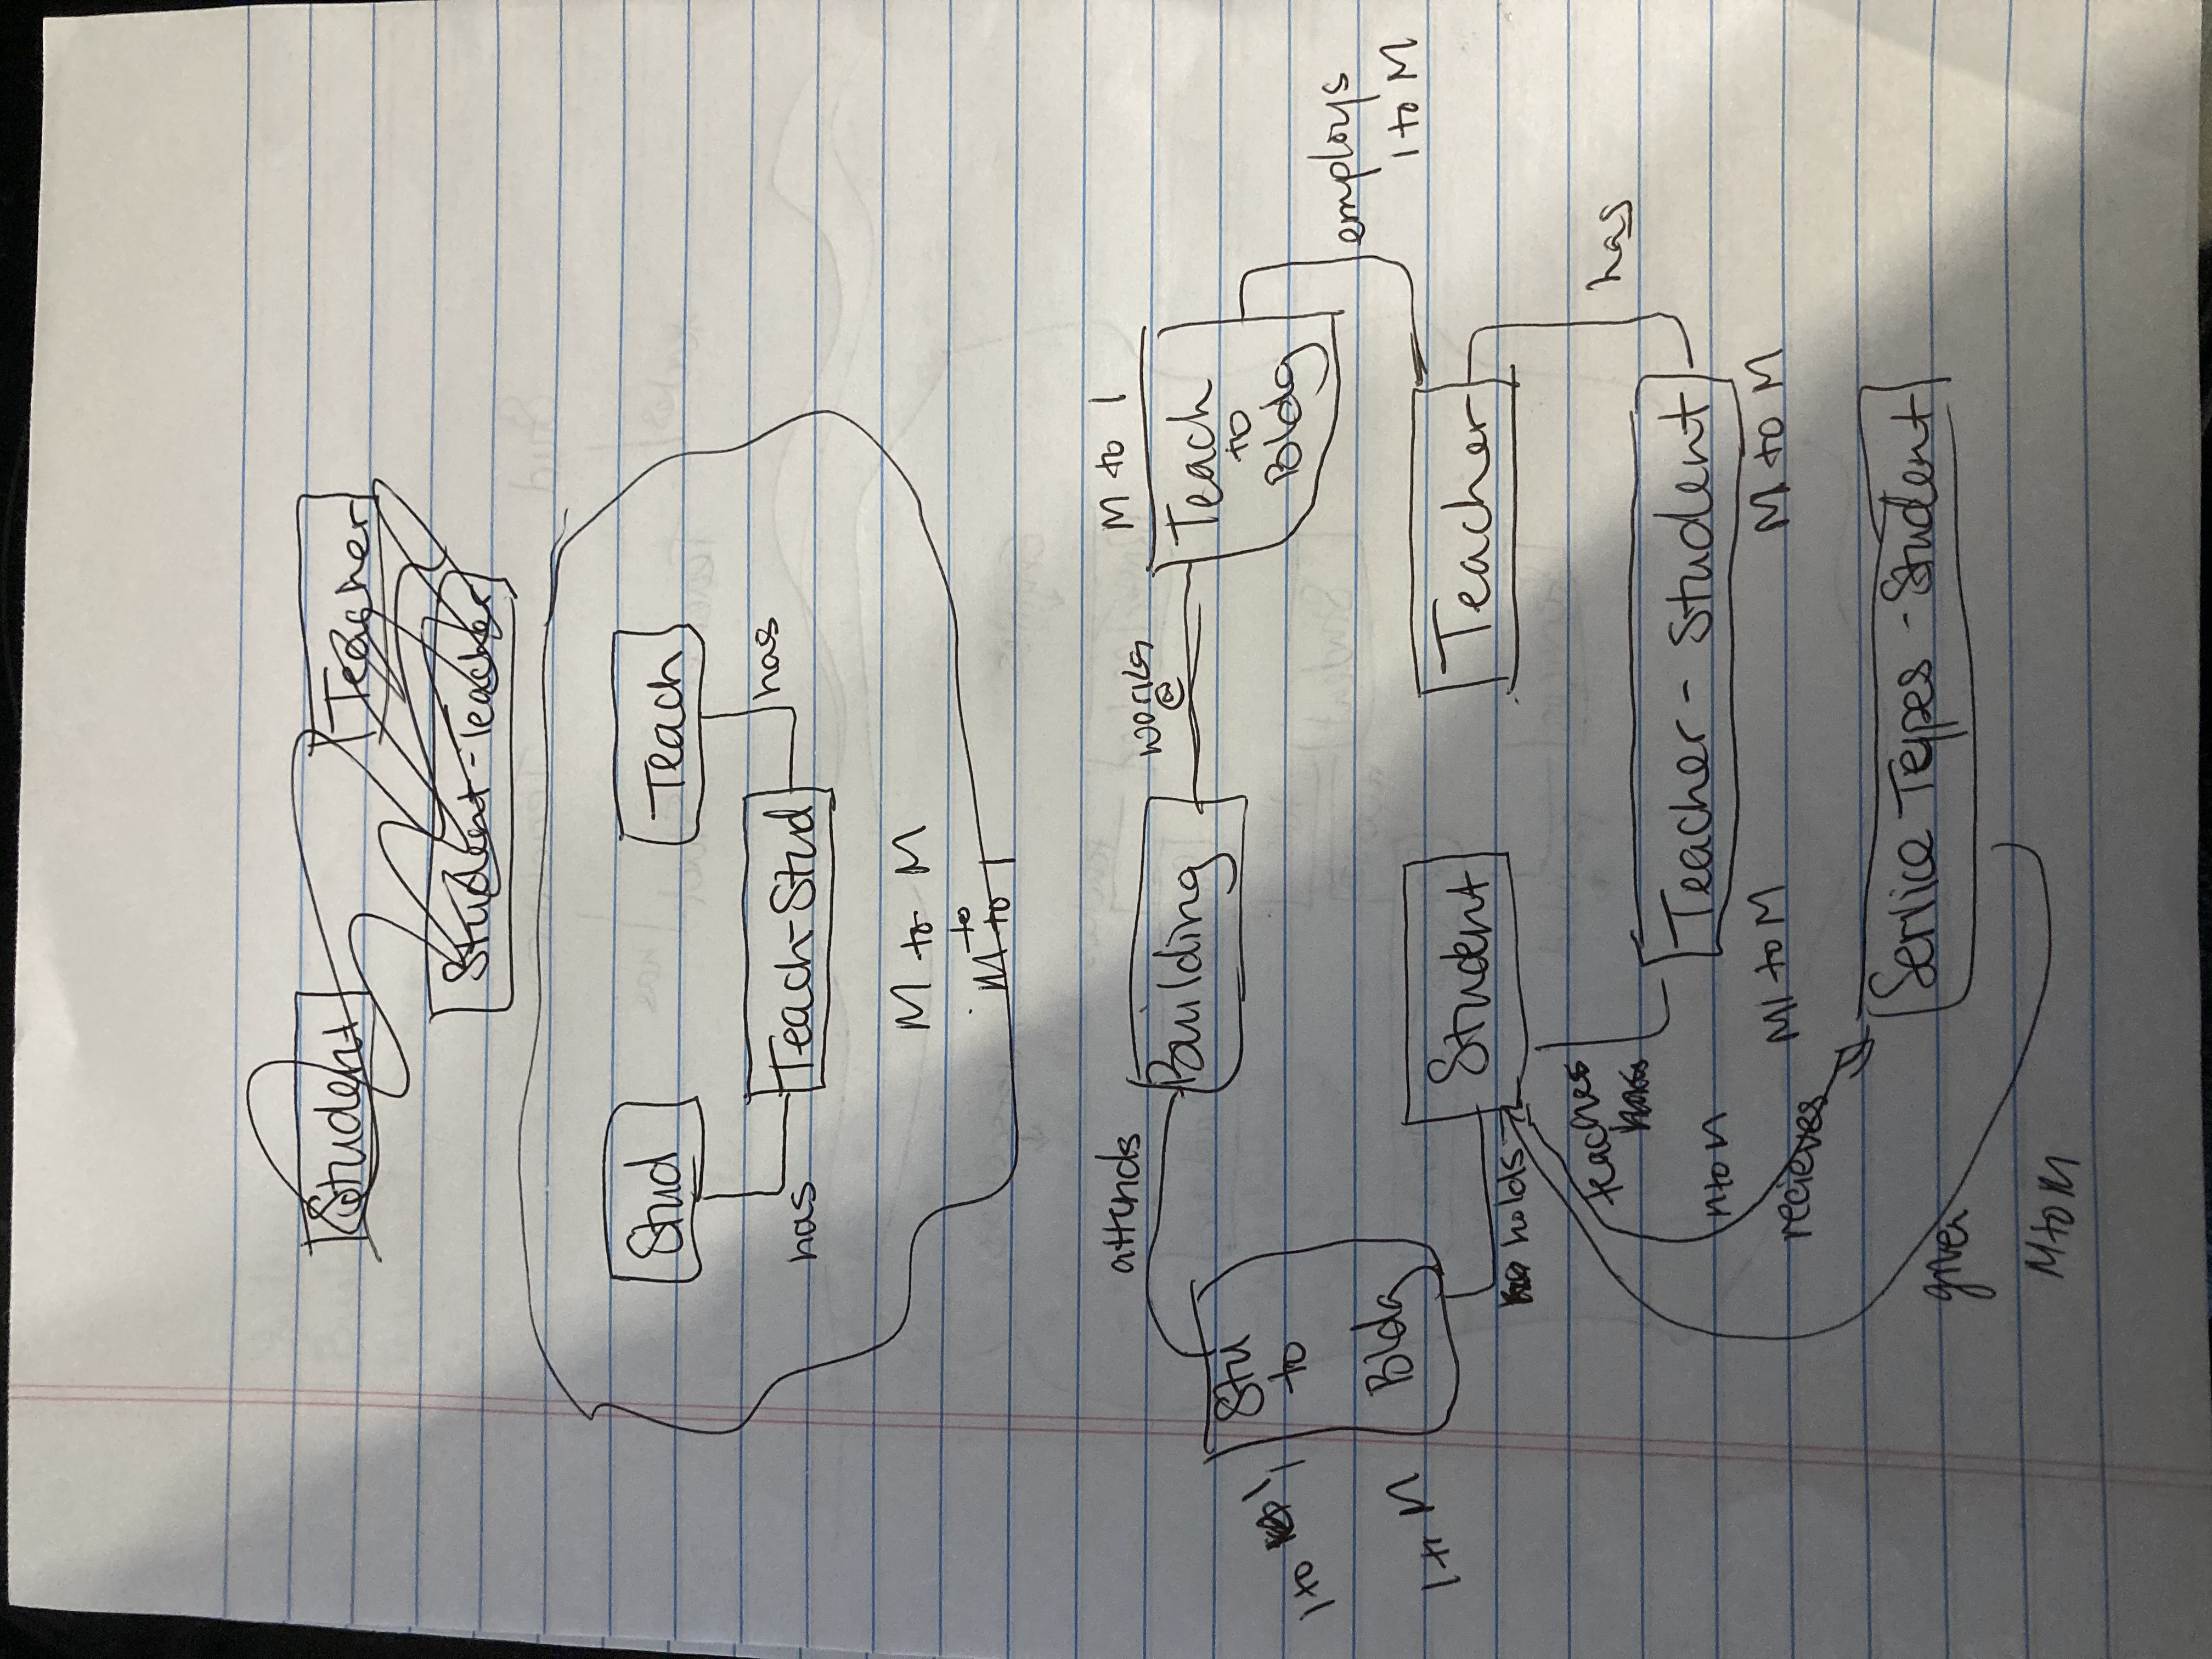 Student
Teacher
Student-Teacher
Stud
Teach
has
Teach-Stud
has
M to M
to
M to 1
attends
Building
works
@
M to 1
Teach
to
Bldg
Stu
to
Bldg
1 to 1
1 to M
employs
1 to M
Student
Teacher
holds
teaches
has
has
Teacher - Student
n to n
M1 to M
M to M
recieves
Service Types - Student
given
M to M